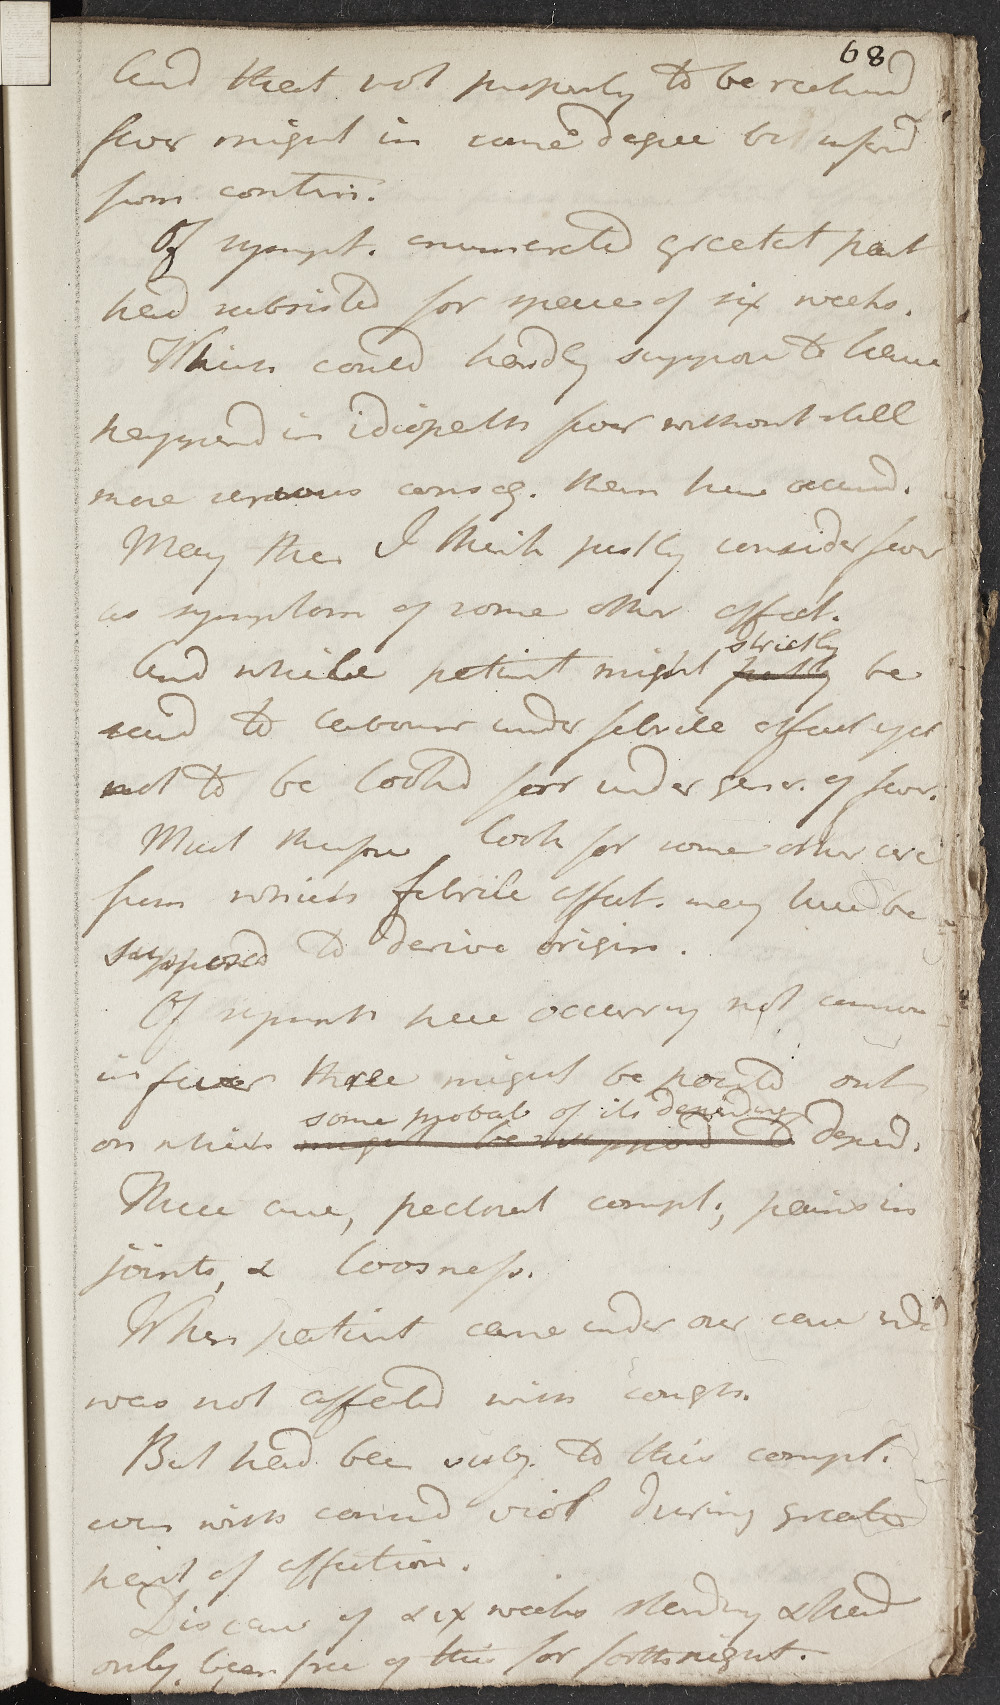 68
And that not properly to be reckond
fever might in some degree be inferd
from contin.
Of sympt. enumerated greatest part
had subsisted for space of six weeks.
Which could hardly suppose to have
happend in idiopath fever without still
more serious conseq. than here occurd.
May then I think justly consider fever
as symptom of some other affect.
And while patient might strictly justly be
said to labour under febrile affect yet
not to be lookd for under gener. of fever.
Must therefore look for some other
from which febrile affect. may here be
supposed to derive origin.
Of symptoms here occurring not common
in fever three might be pointed out
on which some probab of its depending might be supposed to depend.
These are, pectoral compl., pains in
joints, & loosness.
When patient came under our care indd
was not affected with cough.
But had been subj. to this compl.
even with considd viol during greater
part of affection.
Disease of six weeks standing & had
only been free of this for forthnight.